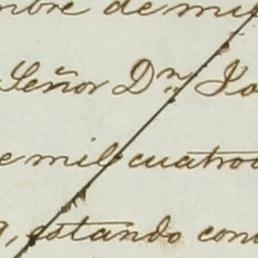 mbre de mil
Señor Dn. Jo
e mil cuatroc
a, estando con